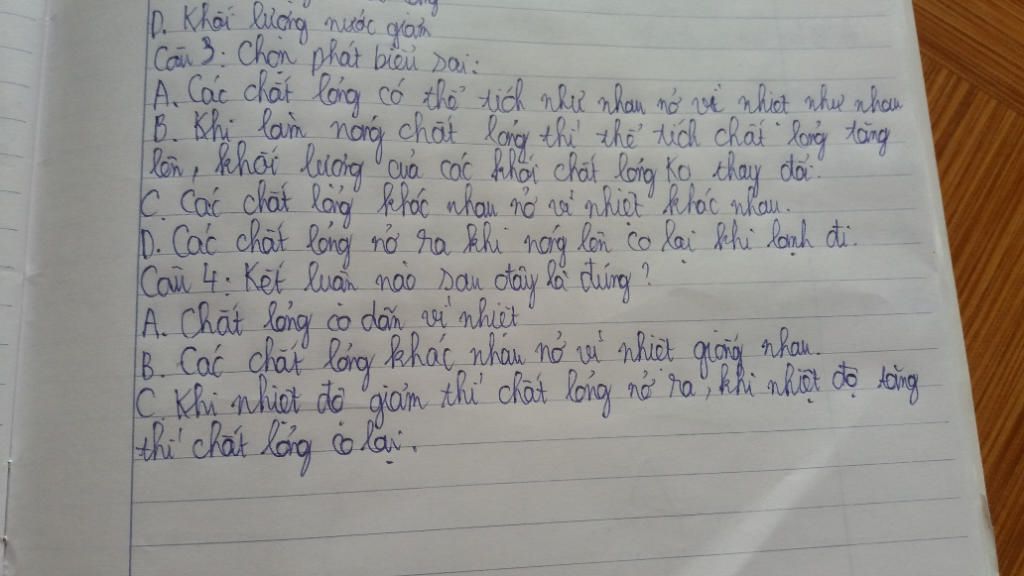 D. Khối lượng nước giảm
Câu 3: Chọn phát biểu sai:
A. Các chất lỏng có thể tích như nhau nở vì nhiệt như nhau
B. Khi làm nóng chất lỏng thì thể tích chất lỏng tăng
lên, khối lượng của các khối chất lỏng ko thay đổi.
C. Các chất lỏng khác nhau nở vì nhiệt khác nhau.
D. Các chất lỏng nở ra khi nóng lên co lại khi lạnh đi.
Câu 4: Kết luận nào sau đây là đúng?
A. Chất lỏng co dãn vì nhiệt
B. Các chất lỏng khác nhau nở vì nhiệt giống nhau.
C. Khi nhiệt độ giảm thì chất lỏng nở ra, khi nhiệt độ tăng
thì chất lỏng co lại.